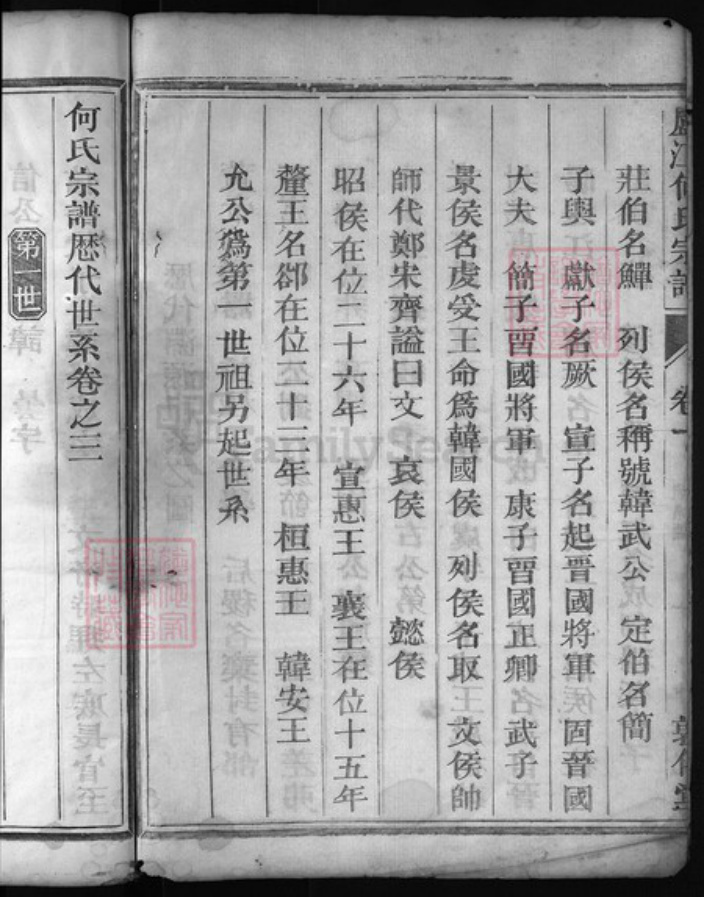 廬江何氏宗譜
卷一
莊伯名鱓　列侯名稱號韓武公　定伯名簡
子輿　獻子名厥　宣子名起晋國將軍　固晉國
大夫　簡子晋國將軍　康子晋國正卿　武子
景侯名虔受王命爲韓國侯　列侯名取　文侯帥
師代鄭宋齊謚曰文　哀侯　懿侯
昭侯在位二十六年　宣惠王　襄王在位十五年
釐王名郤在位二十三年　桓惠王　韓安王
允公爲第一世祖另起世系
何氏宗譜歷代世系卷之三
第一世
FamilySearch